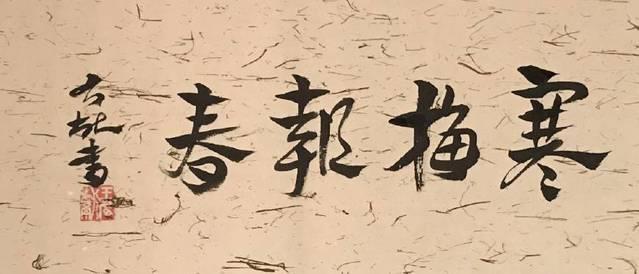 寒梅報春
書